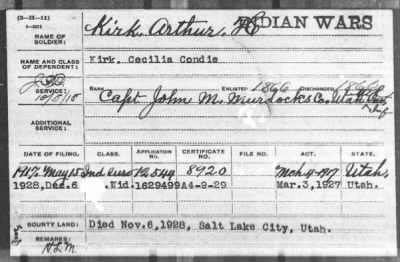 (3-55-11)
INDIAN WARS
NAME OF SOLDIER: Kirk, Arthur,
NAME AND CLASS OF DEPENDENT: Kirk, Cecilia Condie
SERVICE: 10/5/18 RANK ENLISTED 1866 DISCHARGED 1866
Capt John M. Murdock's Co. Utah
ADDITIONAL SERVICE:
DATE OF FILING. CLASS. APPLICATION NO. CERTIFICATE NO. FILE NO. ACT. STATE.
1917 May 15 Ind Surv 12544 8920 Mch 4-1917 Utah,
1928, Dec.6 Wid. 1629499 A4-9-29 Mar.3,1927 Utah.
BOUNTY LAND: Died Nov.6,1928, Salt Lake City, Utah.
REMARKS: